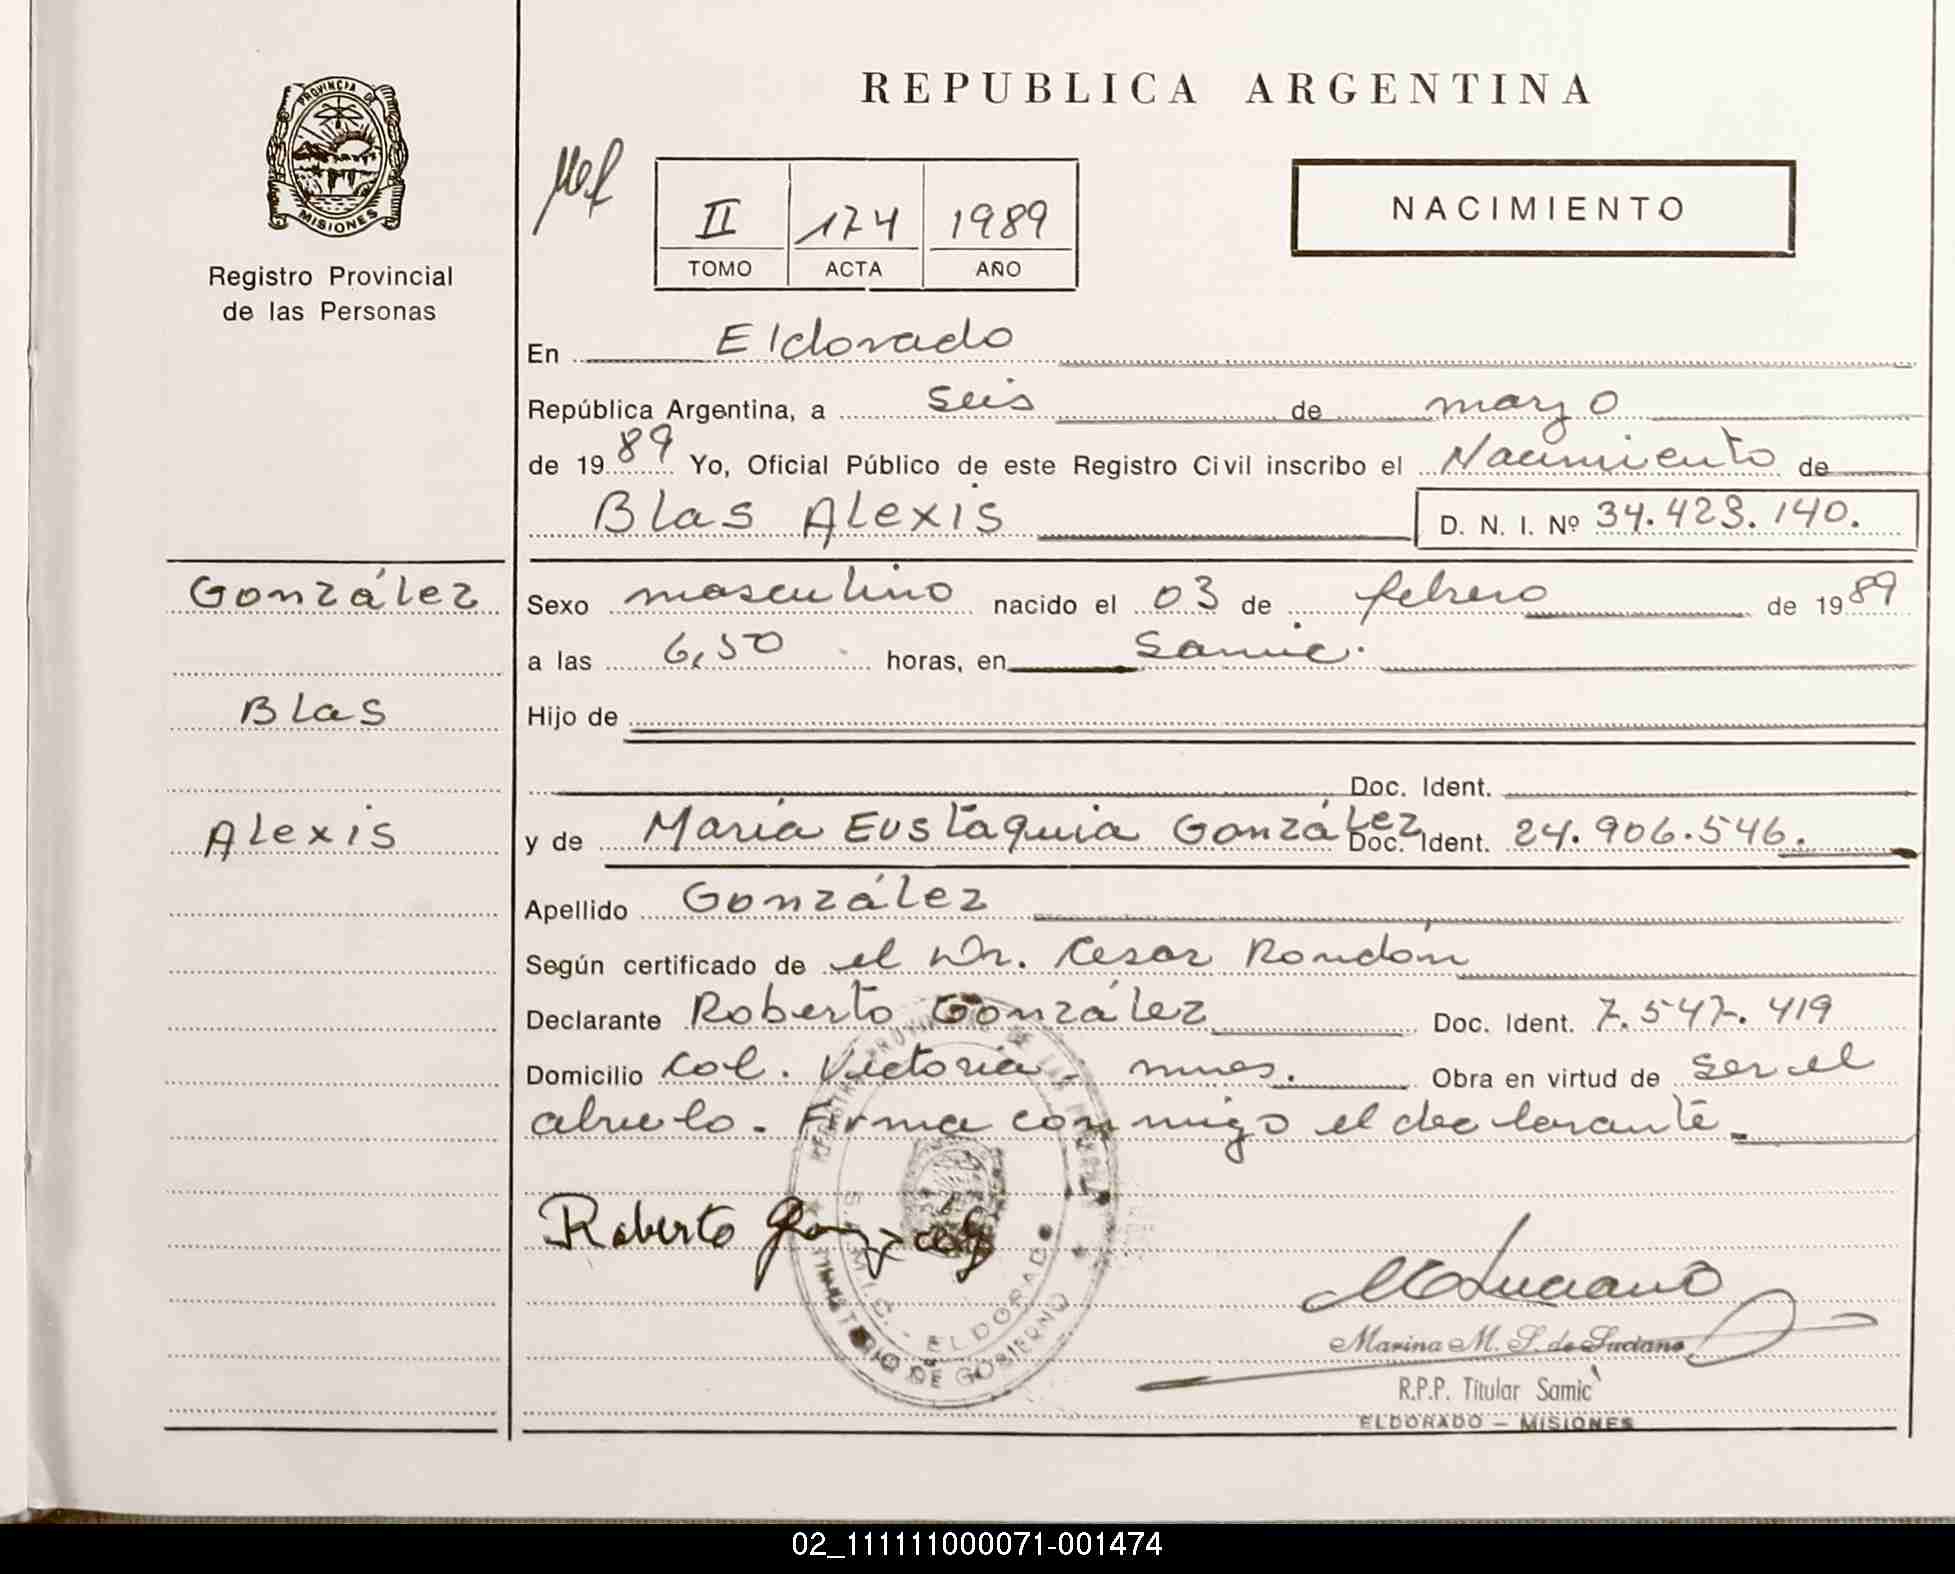 REPUBLICA ARGENTINA
PROVINCIA DE
MISIONES
Registro Provincial
de las Personas
II 174 1989
TOMO ACTA AÑO
NACIMIENTO
En Eldorado
República Argentina, a seis de marzo
de 1989 Yo, Oficial Público de este Registro Civil inscribo el Nacimiento de
Blas Alexis D. N. I. Nº 34.423.140.
González
Blas
Alexis
Sexo masculino nacido el 03 de febrero de 1989
a las 6,50 horas, en Samic.
Hijo de
Doc. Ident.
y de María Eustaquia González Doc. Ident. 24.906.546.
Apellido González
Según certificado de el Dr. Cesar Rondón
Declarante Roberto González Doc. Ident. 7.547.419
Domicilio Col. Victoria - mnes. Obra en virtud de ser el
abuelo. Firma conmigo el declarante
Roberto González
REGISTRO PROVINCIAL DE LAS PERSONAS
S.A.M.I.C. - ELDORADO
MINISTERIO DE GOBIERNO
Luciano
Marina M. S. de Luciano
R.P.P. Titular Samic
ELDORADO - MISIONES
02_111111000071-001474